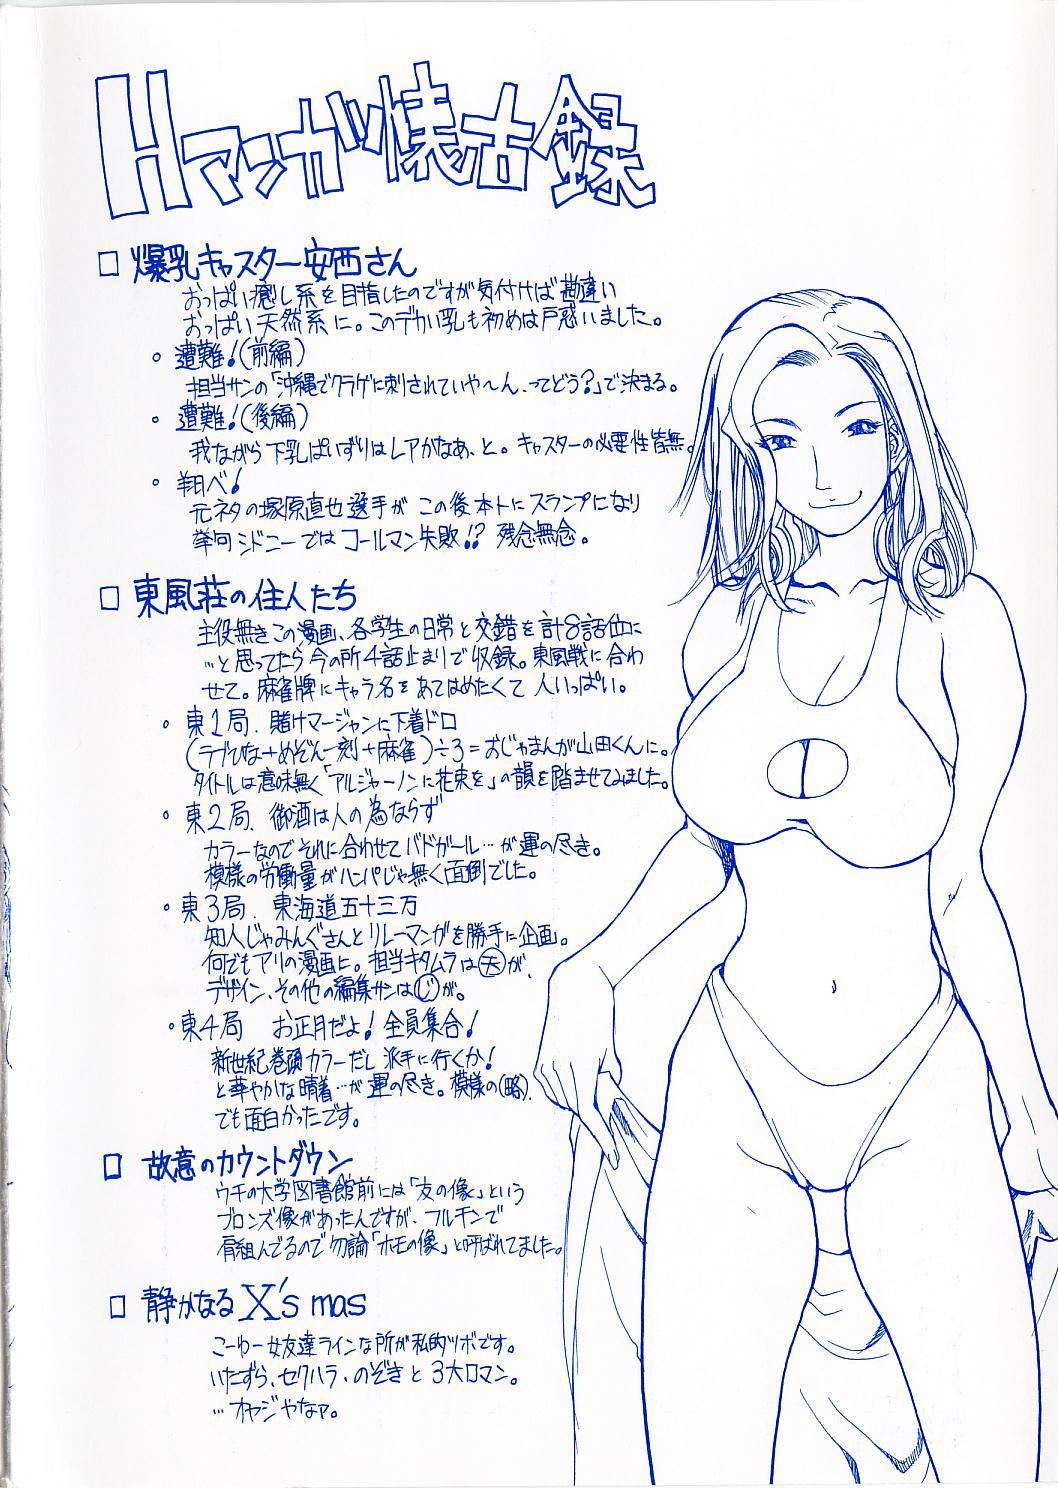 Hマンガ懐古録
□ 爆乳キャスター安西さん
おっぱい癒し系を目指したのですが気付けば勘違い
おっぱい天然系に。このデカい乳も初めは戸惑いました。
・遭難!(前編)
担当サンの「沖縄でクラゲに刺されていや〜ん、ってどう?」で決まる。
・遭難!(後編)
我ながら下乳ぱいずりはレアかなぁ、と。キャスターの必要性皆無。
・翔べ!
元ネタの塚原直也選手がこの後本トにスランプになり
挙句シドニーではコールマン失敗!? 残念無念。
□ 東風荘の住人たち
主役無きこの漫画、各学生の日常と交錯を計8話位に
…と思ってたら今の所4話止まりで収録。東風戦に合わ
せて。麻雀牌にキャラ名をあてはめたくて人いっぱい。
・東1局. 賭けマージャンに下着ドロ
(ラブひな+めぞん一刻+麻雀)÷3=おじゃまんが山田くんに。
タイトルは意味無く「アルジャーノンに花束を」の韻を踏ませてみました。
・東2局. 御酒は人の為ならず
カラーなのでそれに合わせてバドガール…が運の尽き。
模様の労働量がハンパじゃ無く面倒でした。
・東3局. 東海道五十三万
知人じゃみんぐさんとリレーマンガを勝手に企画。
何でもアリの漫画に。担当キタムラは天が、
デザイン、その他の編集サンはじが。
・東4局 お正月だよ!全員集合!
新世紀巻頭カラーだし派手に行くか!
と華やかな晴着…が運の尽き。模様の(略)
でも面白かったです。
□ 故意のカウントダウン
ウチの大学図書館前には「友の像」という
ブロンズ像があったんですが、フルチンで
肩組んでるので勿論「ホモの像」と呼ばれてました。
□ 静かなるX's mas
こーゆー女友達ラインな所が私的ツボです。
いたずら、セクハラ、のぞきと3大ロマン。
…オヤジやなァ。